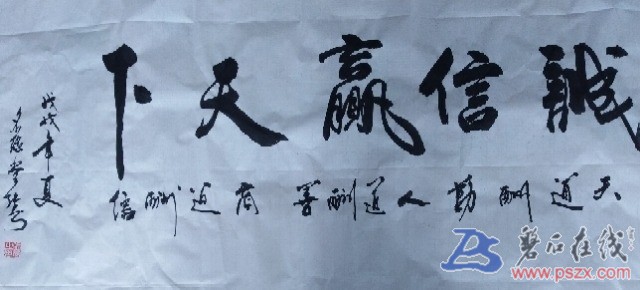 誠信赢天下
天道酬勤人道酬善商道酬信
戊戌年夏
磐石在线
www.pszx.com